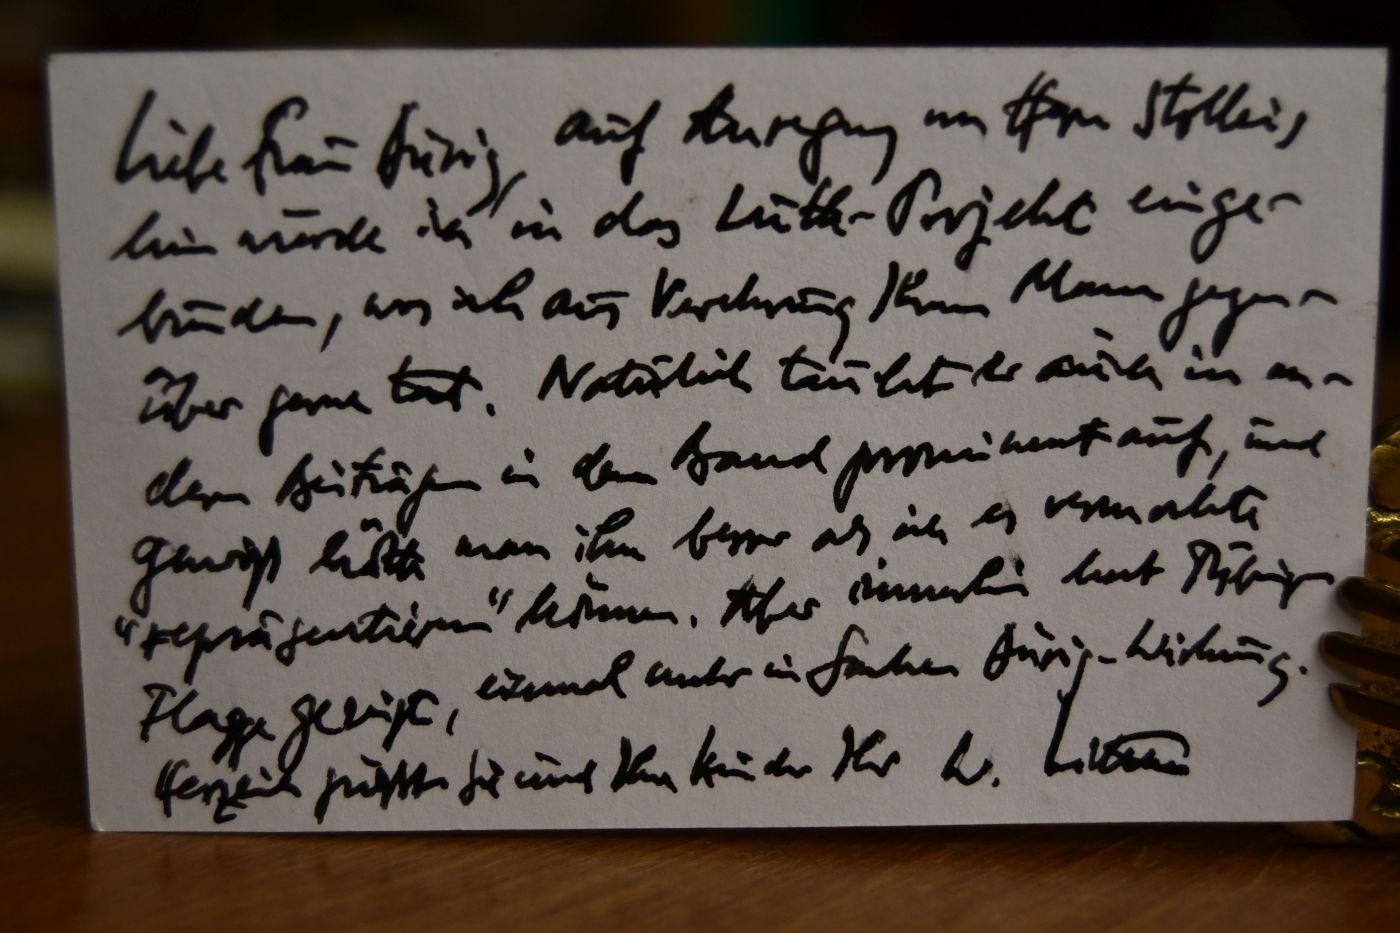 Liebe Frau Dürig, auf Anregung von Herrn Stolleis
hin wurde ich in das Lüth-Projekt einge-
bunden, was ich aus Verehrung Ihrem Mann gegen-
über gerne tat. Natürlich taucht er auch in an-
deren Beiträgen in dem Band prominent auf, und
gewiß hätte man ihn besser als ich es vermochte
"repräsentieren" können. Aber immerhin hat Tübingen
Flagge gezeigt, einmal mehr in Sachen Dürig-Wirkung.
Herzlich grüßt Sie und Ihre Kinder Ihr